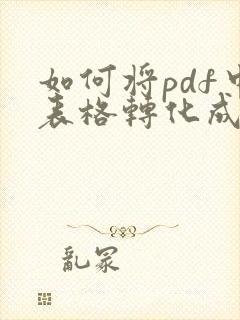 如何将pdf中
表格轉化成
亂冢